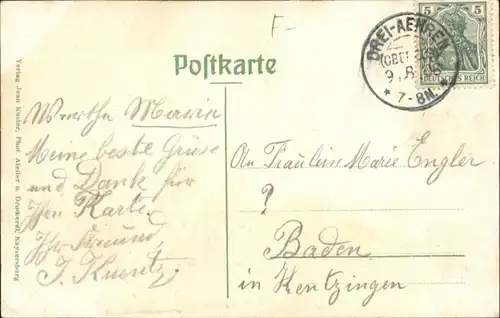 F-
5
DREI-AEHREN
7-8N.
DEUTSCHES REICH
Postkarte
Verlag Jean Kuster, Phot. Atelier u. Druckerei, Kaysersberg
Werthe Marie
Meine beste Grüse
und Dank für
Ihre Karte.
Ihr Freund,
An Fräulein Marie Engler
?
Baden
in Kentzingen